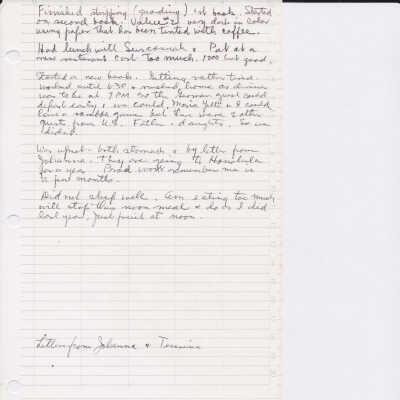 Finished stripping (grading) 1st book. Started
on second book. Value #2 very dark in color
using paper that has been tinted with coffee.
Had lunch with Susannah & Pat at a
new restaurant. Cost too much. Food good.
Started a new book. Getting rather tired.
Worked until 6:30 & rushed home as dinner
was to be at 7 PM so the German guest could
depart early & we could, Maria Yetti & I could
have a game but there were 2 other
guests from U.S. Father & daughter. So we
didn't.
Was upset - both stomach & by letter from
Johanna. They are going to Honolulu
for a year. Brad won't remember me in
a few months.
Did not sleep well. Am eating too much,
will stop this noon meal & do as I did
last year, just juice at noon.
Letters from Johanna &